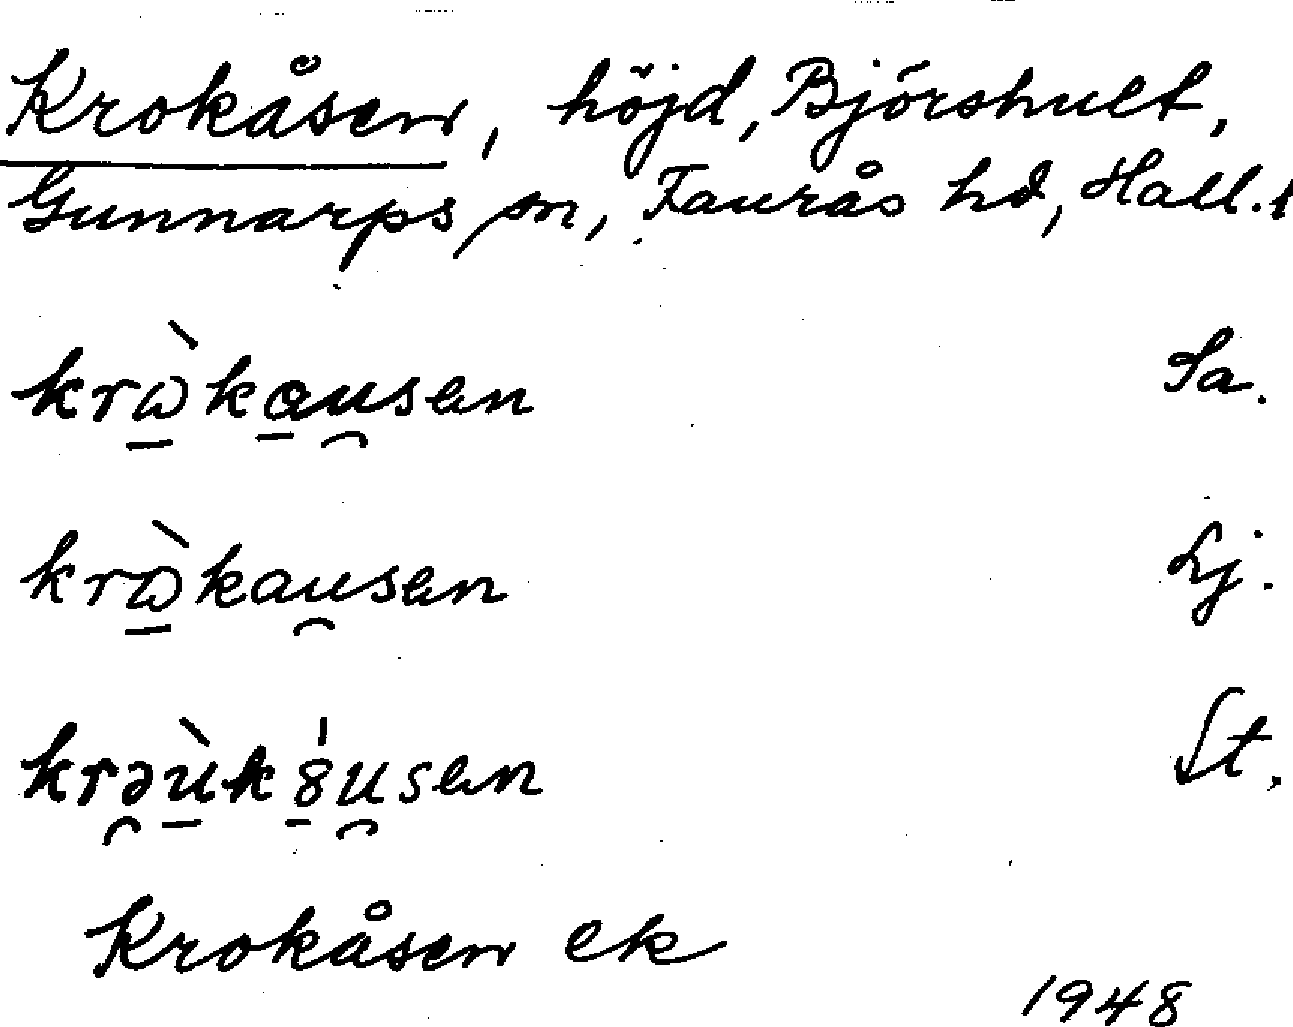 Krokåsen, höjd, Björshult,
Gunnarps sn, Faurås hd, Hall. l
krὼ̱ka̱u̯sen Sa.
krὼ̱kau̯sen Lj.
krə̯ù̱k8̱́u̯sen St.
Krokåsen ek
1948